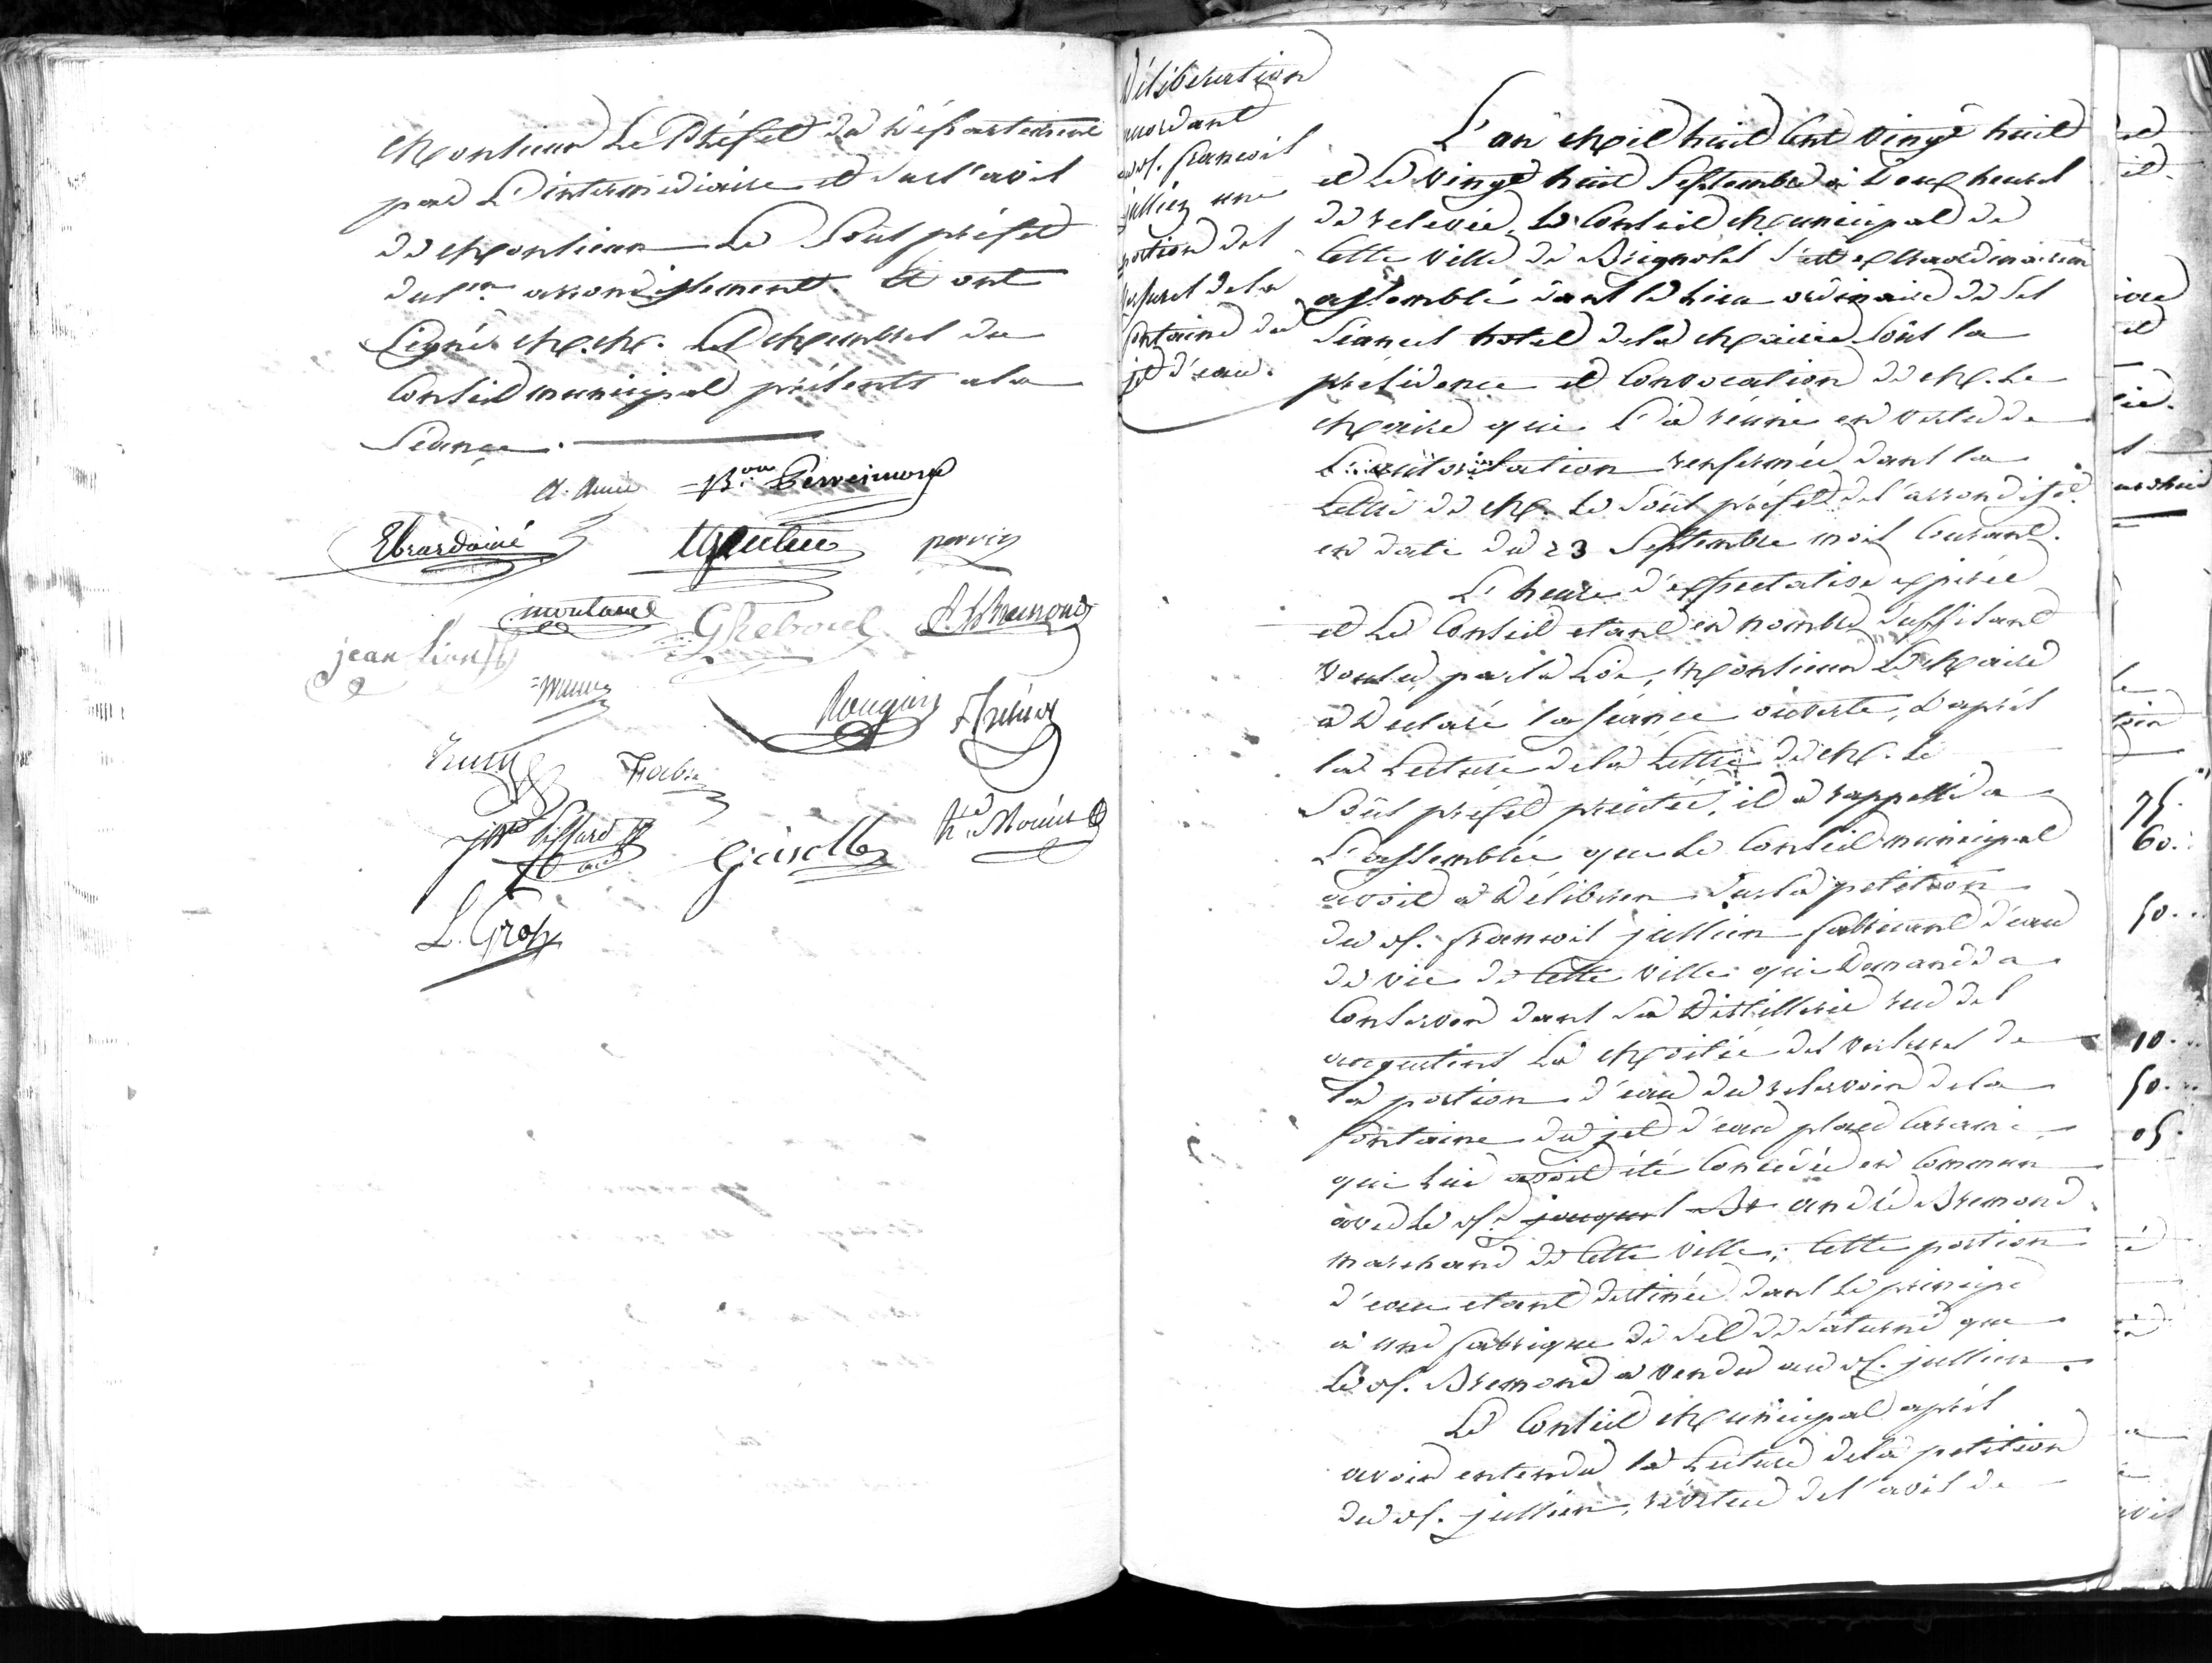 Monsieur Le Préfet du Département
par L'intermédiaire et sur l'avis
de Monsieur Le Sous préfet
du 1er arrondissement. Et ont
Signés M.M. Les Membres du
Conseil municipal présents a la
Séance.
Bon
Ebrard ainé
jean Lion
G Reboul
Bremond
Rougiers
Fabre
L. Gros
Délibération
accordant
au sr. francois
jullien une
portion des
versures de la
fontaine du
jet d'eau.
L'an Mil huit Cent vingt huit
et Le vingt huit Septembre à Deux heures
de relevée, Le Conseil Municipal de
Cette ville de Brignoles s'est extraordinairem
assemblé dans le Lieu ordinaire de ses
Séances hotel de la Mairie Sous la
présidence et Convocation de M. Le
Maire qui L'a réuni en vertu de
L'autorisation renfermée dans la
Lettre de M. Le Sous préfet de l'arrondisst.
en date du 23 Septembre mois Courant.
L'heure d'expectative expirée
et Le Conseil etant en nombre suffisant
voulu par la Loi, Monsieur Le Maire
a Déclaré la séance ouverte, d'après
la Lecture de la Lettre de M. Le
Sous préfet précitée, il a rappellé a
L'assemblée que Le Conseil municipal
avoit a Délibérer sur la petition
du sr. francois jullien fabricant d'eau
de vie de Cette ville qui Demande a
Conserver dans sa Distillerie rue des
augustins La Moitié des versures de
la portion d'eau du reservoir de la
fontaine du jet d'eau place Carami
qui lui avoit été Concédée en Commun
avec Le sr. jacques Br andré Bremond
marchand de Cette ville; Cette portion
d'eau etant destinée dans Le principe
à une fabrique de Sel de Saturne que
Le sr. Bremond a vendu au sr. jullien.
Le Conseil Municipal après
avoir entendu la Lecture de la petition
du sr. jullien, revetue de l'avis de
75.
60.
50.
10.
50.
05.